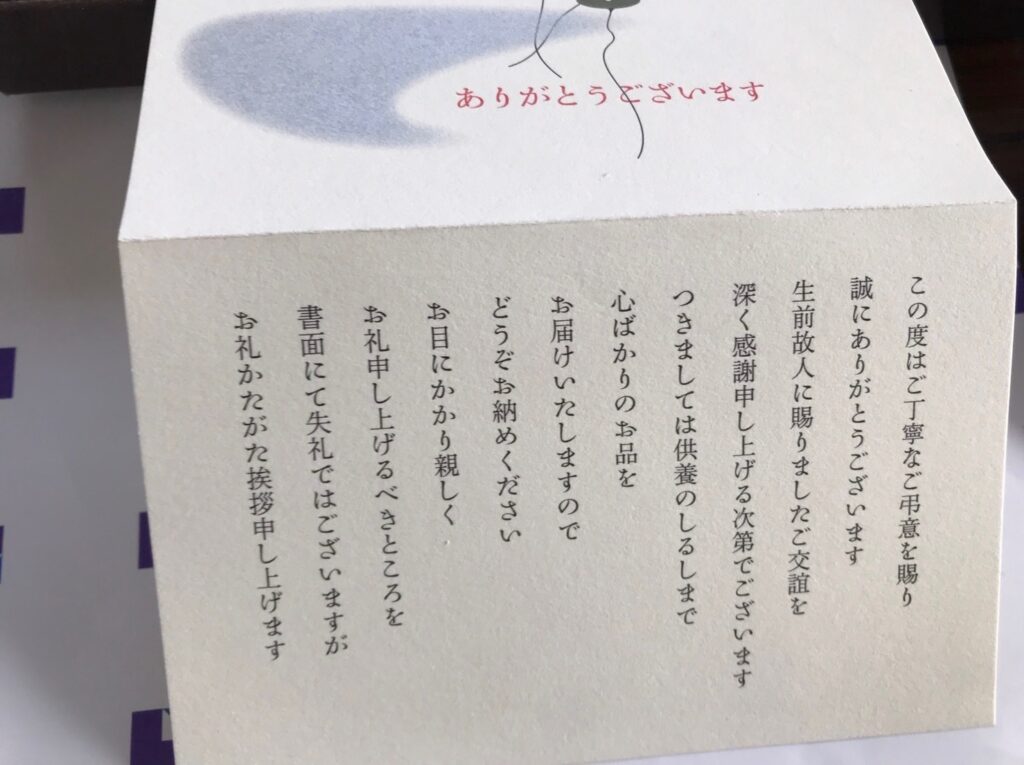 ありがとうございます
この度はご丁寧なご弔意を賜り
誠にありがとうございます
生前故人に賜りましたご交誼を
深く感謝申し上げる次第でございます
つきましては供養のしるしまで
心ばかりのお品を
お届けいたしますので
どうぞお納めください
お目にかかり親しく
お礼申し上げるべきところを
書面にて失礼ではございますが
お礼かたがた挨拶申し上げます